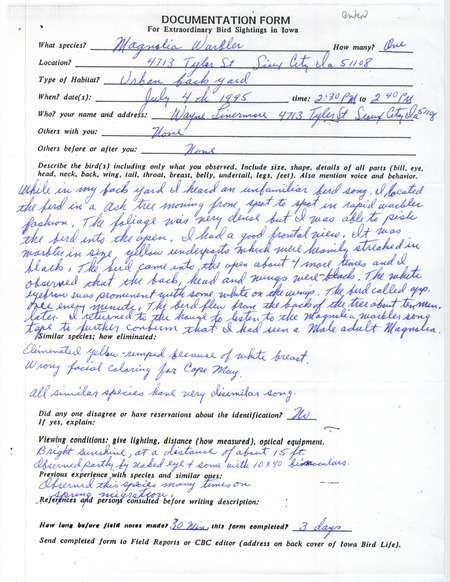 DOCUMENTATION FORM
For Extraordinary Bird Sightings in Iowa
What species? Magnolia Warbler How many? One
Location? 4713 Tyler St Sioux City Ia 51108
Type of Habitat? Urban back yard
When? date(s): July 4th 1995 time: 2:30 PM to 2:40 PM
Who? your name and address: Wayne Livermore 4713 Tyler St Sioux City Ia 51108
Others with you: None
Others before or after you: None
Describe the bird(s) including only what you observed. Include size, shape, details of all parts (bill, eye,
head, neck, back, wing, tail, throat, breast, belly, undertail, legs, feet). Also mention voice and behavior.
While in my back yard I heard an unfamiliar bird song. I located
the bird in a Ash tree moving from spot to spot in rapid warbler
fashion. The foliage was very dense but I was able to pish
the bird into the open. I had a good frontal view. It was
warbler in size, yellow underparts which were heavily streaked in
black. The bird came into the open about 4 more times and I
observed that the back, head and wings were black. The white
eyebrow was prominent with some white on the wings. The bird called
once every minute. The bird flew from the back of the tree about ten min.
later. I returned to the house to listen to the Magnolia warbler song
tape to further confirm that I had seen a Male adult Magnolia.
Similar species; how eliminated:
Eliminated yellow-rumped because of white breast.
Wrong facial coloring for Cape May.
All similar species have very disimilar song.
Did any one disagree or have reservations about the identification? No
If yes, explain:
Viewing conditions: give lighting, distance (how measured), optical equipment.
Bright sunshine, at a distance of about 15 ft.
Observed partly by naked eye & some with 10X40 binoculars.
Previous experience with species and similar ones:
Observed this species many times on
spring migration.
References and persons consulted before writing description:
How long before field notes made? 30 Min this form completed? 3 days
Send completed form to Field Reports or CBC editor (address on back cover of Iowa Bird Life).